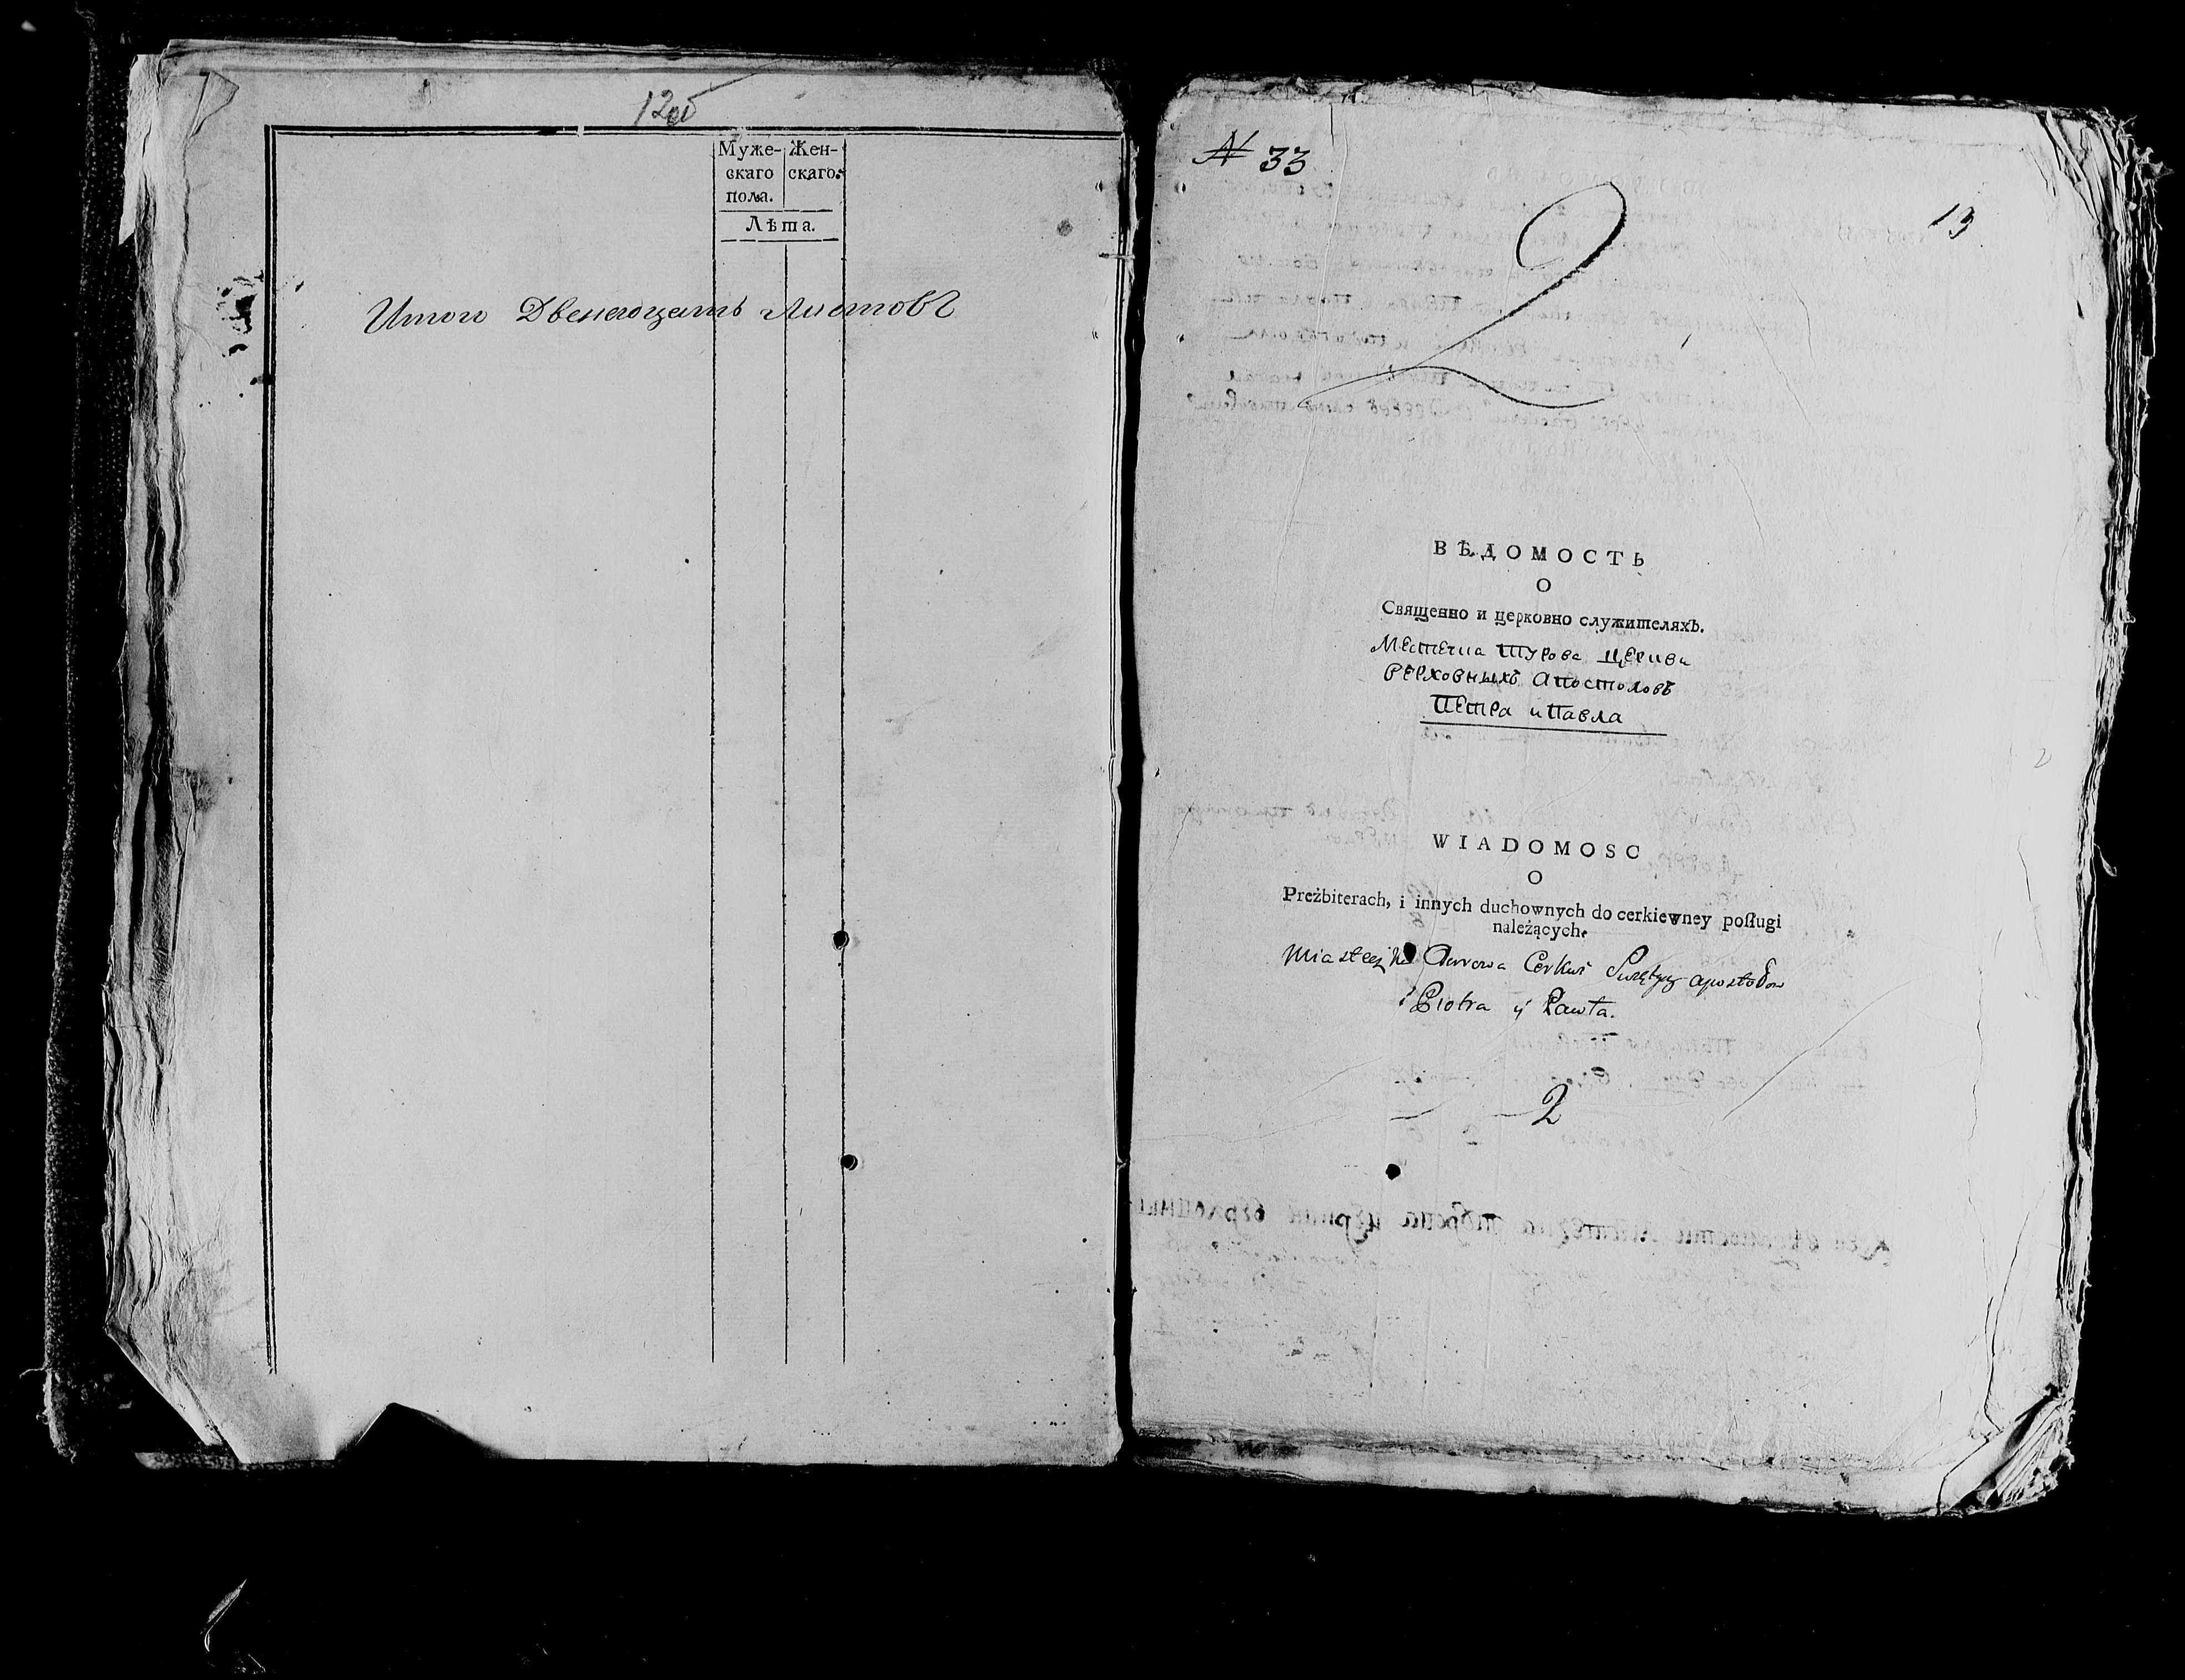 12об
Муже-
скаго
пола.
Жен-
скаго.
Лѣта.
Итого Двенатцать листовъ
№ 33
13
2
ВѢДОМОСТЬ
О
Священно и церковно служителяхъ.
Местечка Турова церква
верховныхъ Апостоловъ
Петра и Павла
WIADOMOSC
O
Preżbiterach, i innych duchownych do cerkiewney posługi
należących.
Miasteczka Cerkwi apostołow
Piotra y Pawła.
2